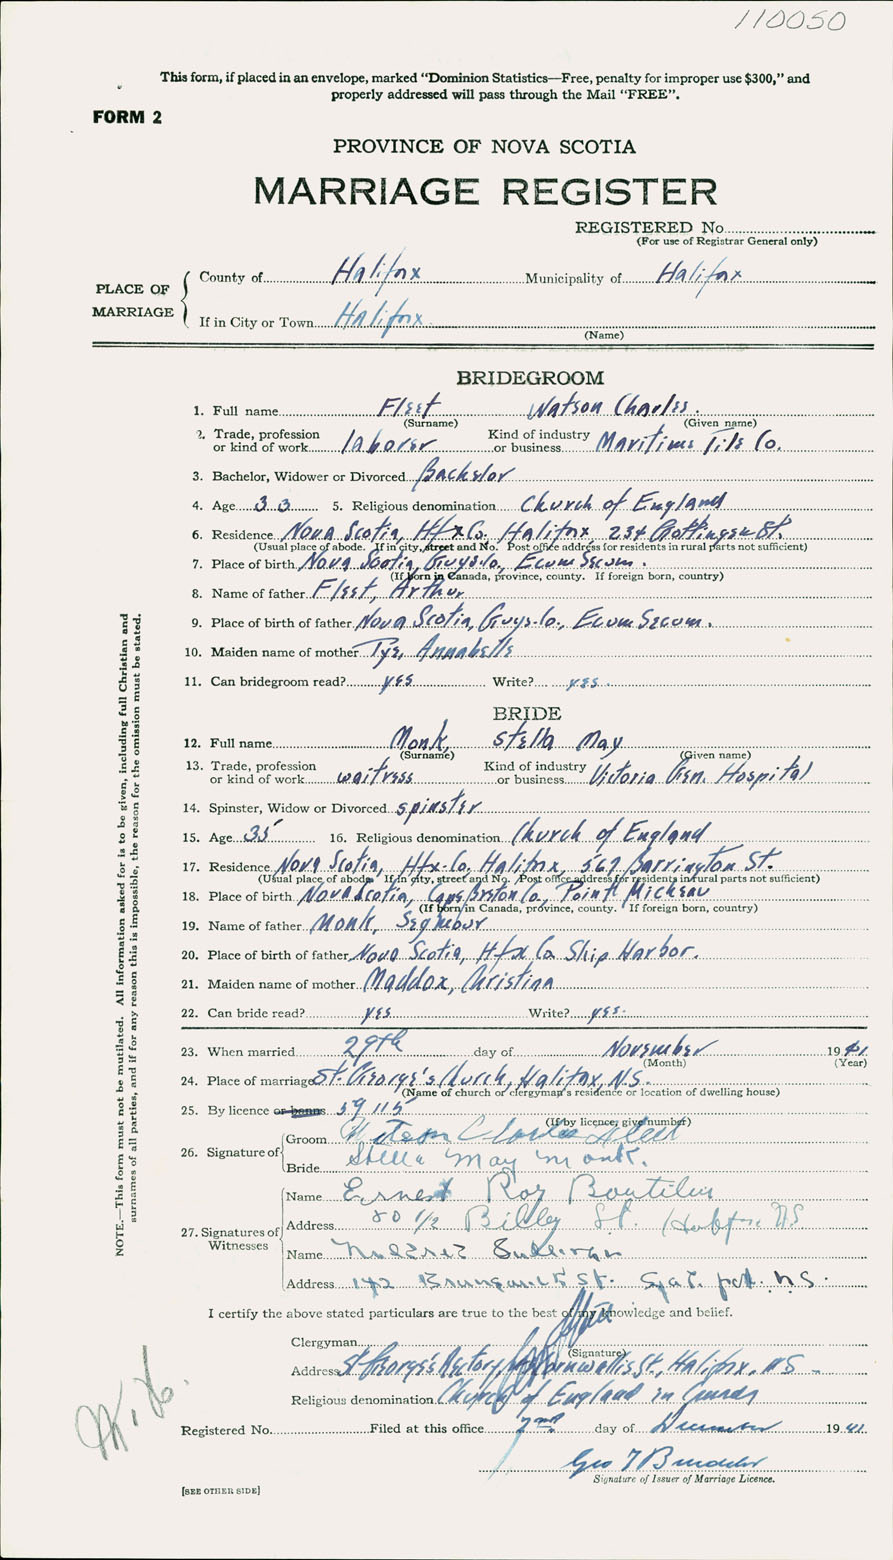 110050
This form, if placed in an envelope, marked "Dominion Statistics—Free, penalty for improper use $300," and
properly addressed will pass through the Mail "FREE".
FORM 2
PROVINCE OF NOVA SCOTIA
MARRIAGE REGISTER
REGISTERED No.
(For use of Registrar General only)
PLACE OF MARRIAGE
County of Halifax Municipality of Halifax
If in City or Town Halifax
(Name)
BRIDEGROOM
1. Full name Fleet Watson Charles.
(Surname) (Given name)
2. Trade, profession or kind of work laborer Kind of industry or business Maritime Tile Co.
3. Bachelor, Widower or Divorced Bachelor
4. Age 33 5. Religious denomination Church of England
6. Residence Nova Scotia, Hfx Co. Halifax, 234 Gottingen St.
(Usual place of abode. If in city, street and No. Post office address for residents in rural parts not sufficient)
7. Place of birth Nova Scotia, Guys. Co., Ecum Secum.
(If born in Canada, province, county. If foreign born, country)
8. Name of father Fleet, Arthur
9. Place of birth of father Nova Scotia, Guys. Co., Ecum Secum.
10. Maiden name of mother Pye, Annabelle
11. Can bridegroom read? yes Write? yes.
BRIDE
12. Full name Monk, Stella May
(Surname) (Given name)
13. Trade, profession or kind of work waitress Kind of industry or business Victoria Gen. Hospital
14. Spinster, Widow or Divorced spinster
15. Age 35 16. Religious denomination Church of England
17. Residence Nova Scotia, Hfx. Co, Halifax, 567 Barrington St.
(Usual place of abode. If in city, street and No. Post office address for residents in rural parts not sufficient)
18. Place of birth Nova Scotia, Cape Breton Co., Point Micheau
(If born in Canada, province, county. If foreign born, country)
19. Name of father Monk, Seymour
20. Place of birth of father Nova Scotia, Hfx Co Ship Harbor.
21. Maiden name of mother Maddox, Christina
22. Can bride read? yes Write? yes.
23. When married 29th day of November 1941
(Month) (Year)
24. Place of marriage St. George's Church, Halifax, N.S.
(Name of church or clergyman's residence or location of dwelling house)
25. By licence or banns 59115
(If by licence, give number)
26. Signature of
Groom Watson Charles Fleet
Bride Stella May Monk.
27. Signatures of Witnesses
Name Ernest Roy Boutilier
Address 80 1/2 Bilby St. N.S
Name Sullivan
Address 142 Brunswick St. N.S.
I certify the above stated particulars are true to the best of my knowledge and belief.
Clergyman
(Signature)
Address St George's Rectory, Cornwallis St., Halifax, N.S.
Religious denomination Church of England in Canada
Registered No. Filed at this office 2nd day of December 1941
Geo T
Signature of Issuer of Marriage Licence.
[SEE OTHER SIDE]
NOTE.—This form must not be mutilated. All information asked for is to be given, including full Christian and
surnames of all parties, and if for any reason this is impossible, the reason for the omission must be stated.